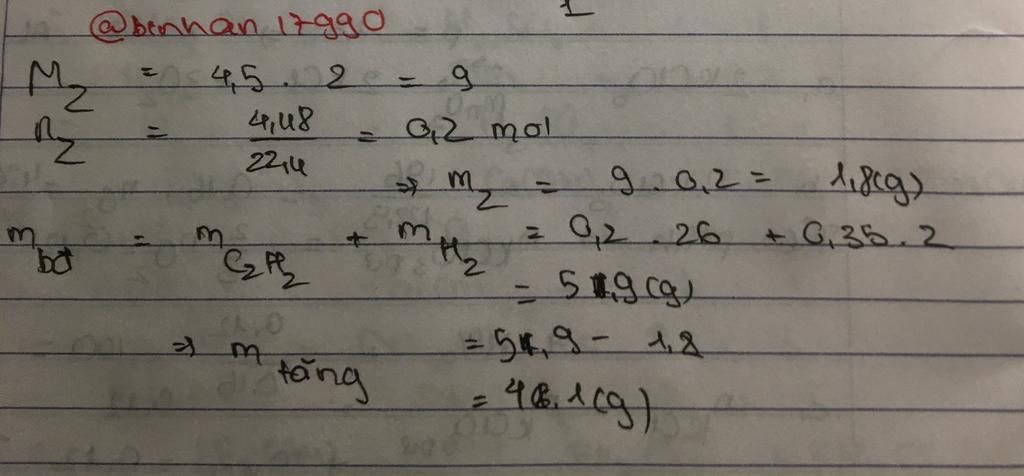 1
@benhan.17990
M_Z = 4,5 . 2 = 9
n_Z = 4,48 / 22,4 = 0,2 mol
⇒ m_Z = 9 . 0,2 = 1,8(g)
m_bđ = m_C2H2 + m_H2 = 0,2 . 26 + 0,35 . 2
= 5,9(g)
⇒ m_tăng = 5,9 - 1,8
= 4,1(g)